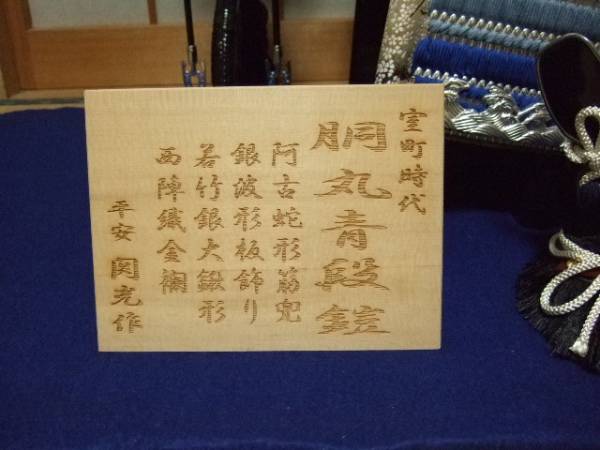 室町時代
胴丸青段鎧
阿古蛇形筋兜
銀波形板飾り
若竹銀大鍬形
西陣織金襴
平安 関光作